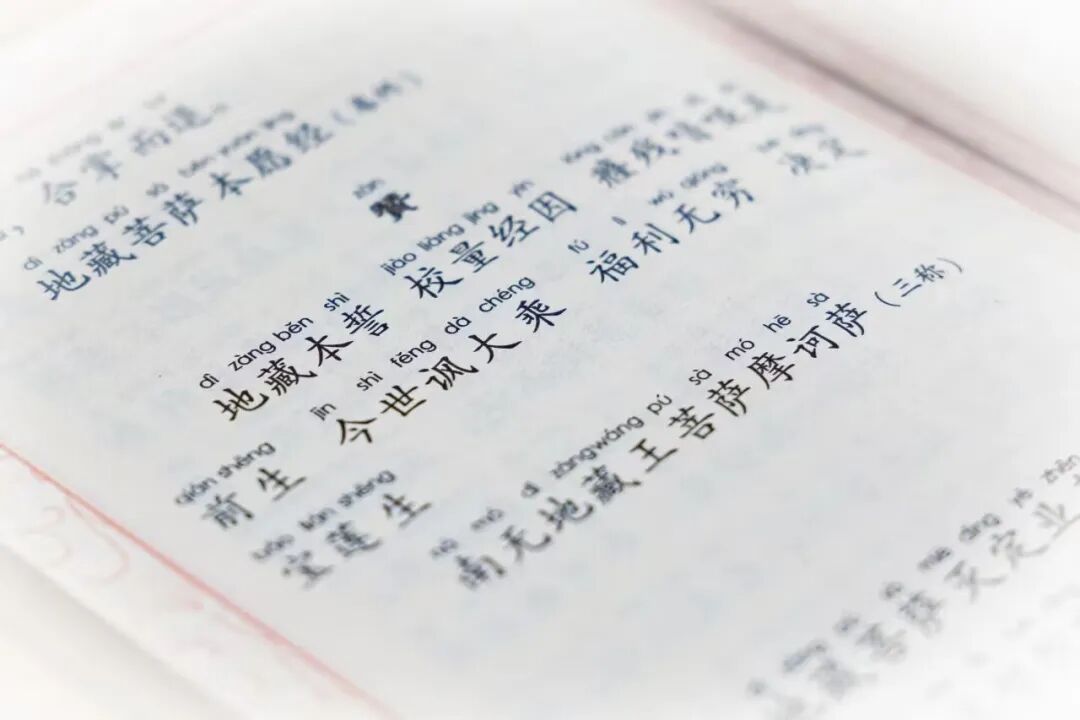 合掌而退。
dì zàng pú sà běn yuàn jīng
地藏菩萨本愿经
zàn
赞
dì zàng běn shì jiào liàng jīng yīn
地藏本誓 校量经因 癃残喑哑
qián shēng jīn shì fěng dà chéng fú lì wú qióng
前生 今世讽大乘 福利无穷 决定
bǎo lián shēng
宝莲生
ná mó dì zàng wáng pú sà mó hē sà
南无地藏王菩萨摩诃萨(三称)
zàng pú sà miè dìng yè zhēn
藏菩萨灭定业